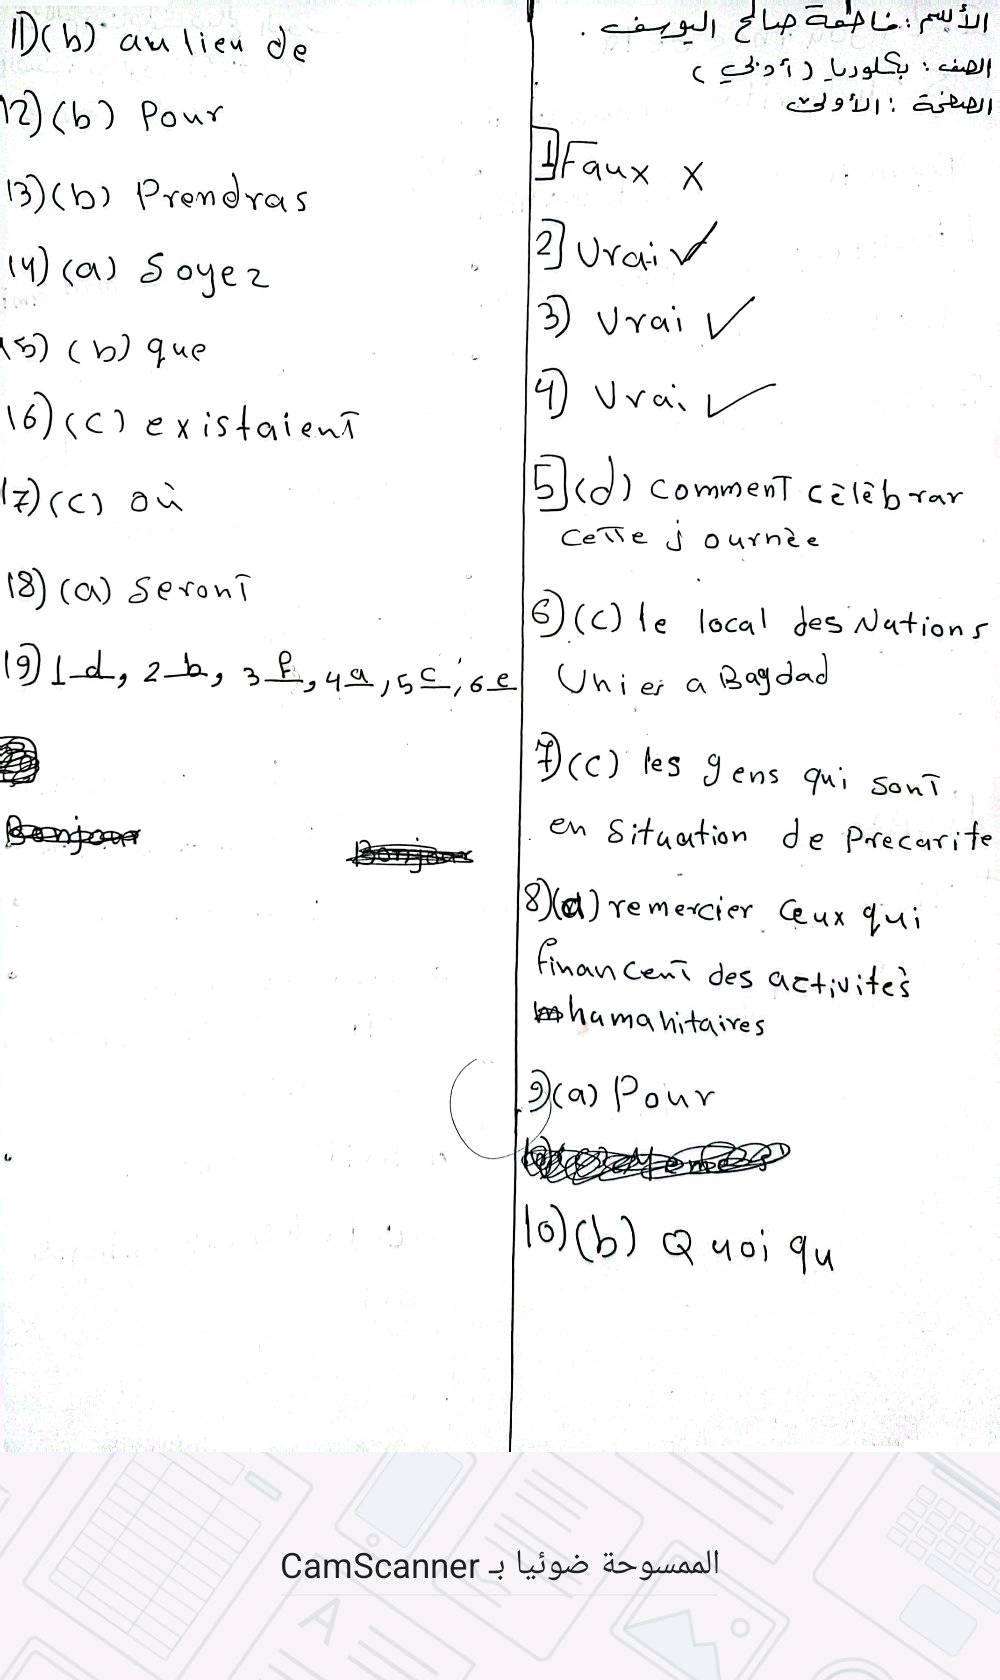 الأسم : فاطمة صالح اليوسف .
الصف : بكلوريا (أدبي)
الصفحة : الأولى
1] Faux x
2] Vrai ✓
3) Vrai ✓
4) Vrai ✓
5] (d) comment cèlèbrar
cette journèe
6) (c) le local des Nations
Unies a Bagdad
7) (c) les gens qui sont
en situation de Precarite
8) (d) remercier ceux qui
financent des activitès
humanitaires
9) (a) Pour
10) (b) Quoi qu
11) (b) au lieu de
12) (b) Pour
13) (b) Prendras
14) (a) Soyez
15) (b) que
16) (c) existaient
17) (c) où
18) (a) Seront
19) 1 d, 2 b, 3 f, 4 a, 5 c, 6 e
Bonjour
Bonjour
الممسوحة ضوئيا بـ CamScanner